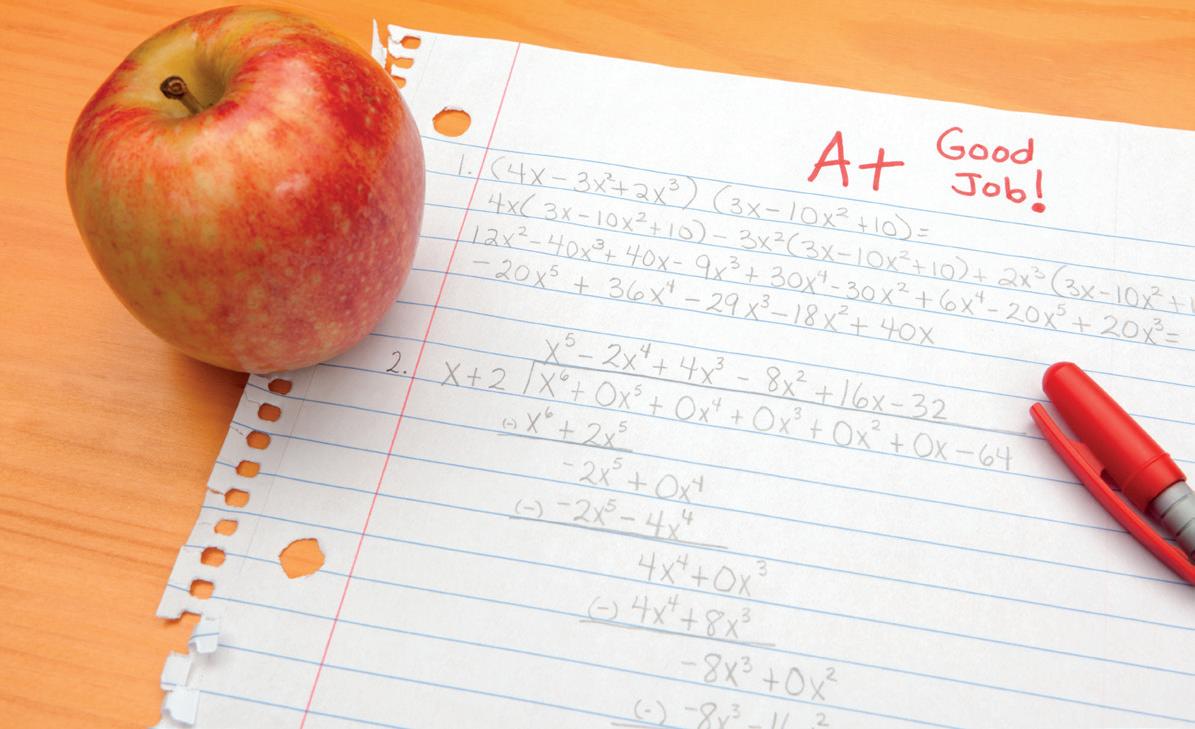 A+ Good
Job!
1. (4x – 3x² + 2x³) (3x – 10x² + 10) =
4x( 3x – 10x² + 10) – 3x²(3x – 10x² + 10) + 2x³ (3x – 10x² +
12x² – 40x³ + 40x – 9x³ + 30x⁴ – 30x² + 6x⁴ – 20x⁵ + 20x³ =
– 20x⁵ + 36x⁴ – 29x³ – 18x² + 40x
x⁵ – 2x⁴ + 4x³ – 8x² + 16x – 32
2. x + 2 | x⁶ + 0x⁵ + 0x⁴ + 0x³ + 0x² + 0x – 64
(-) x⁶ + 2x⁵
-2x⁵ + 0x⁴
(-) -2x⁵ – 4x⁴
4x⁴ + 0x³
(-) 4x⁴ + 8x³
-8x³ + 0x²
(-) -8x³ –